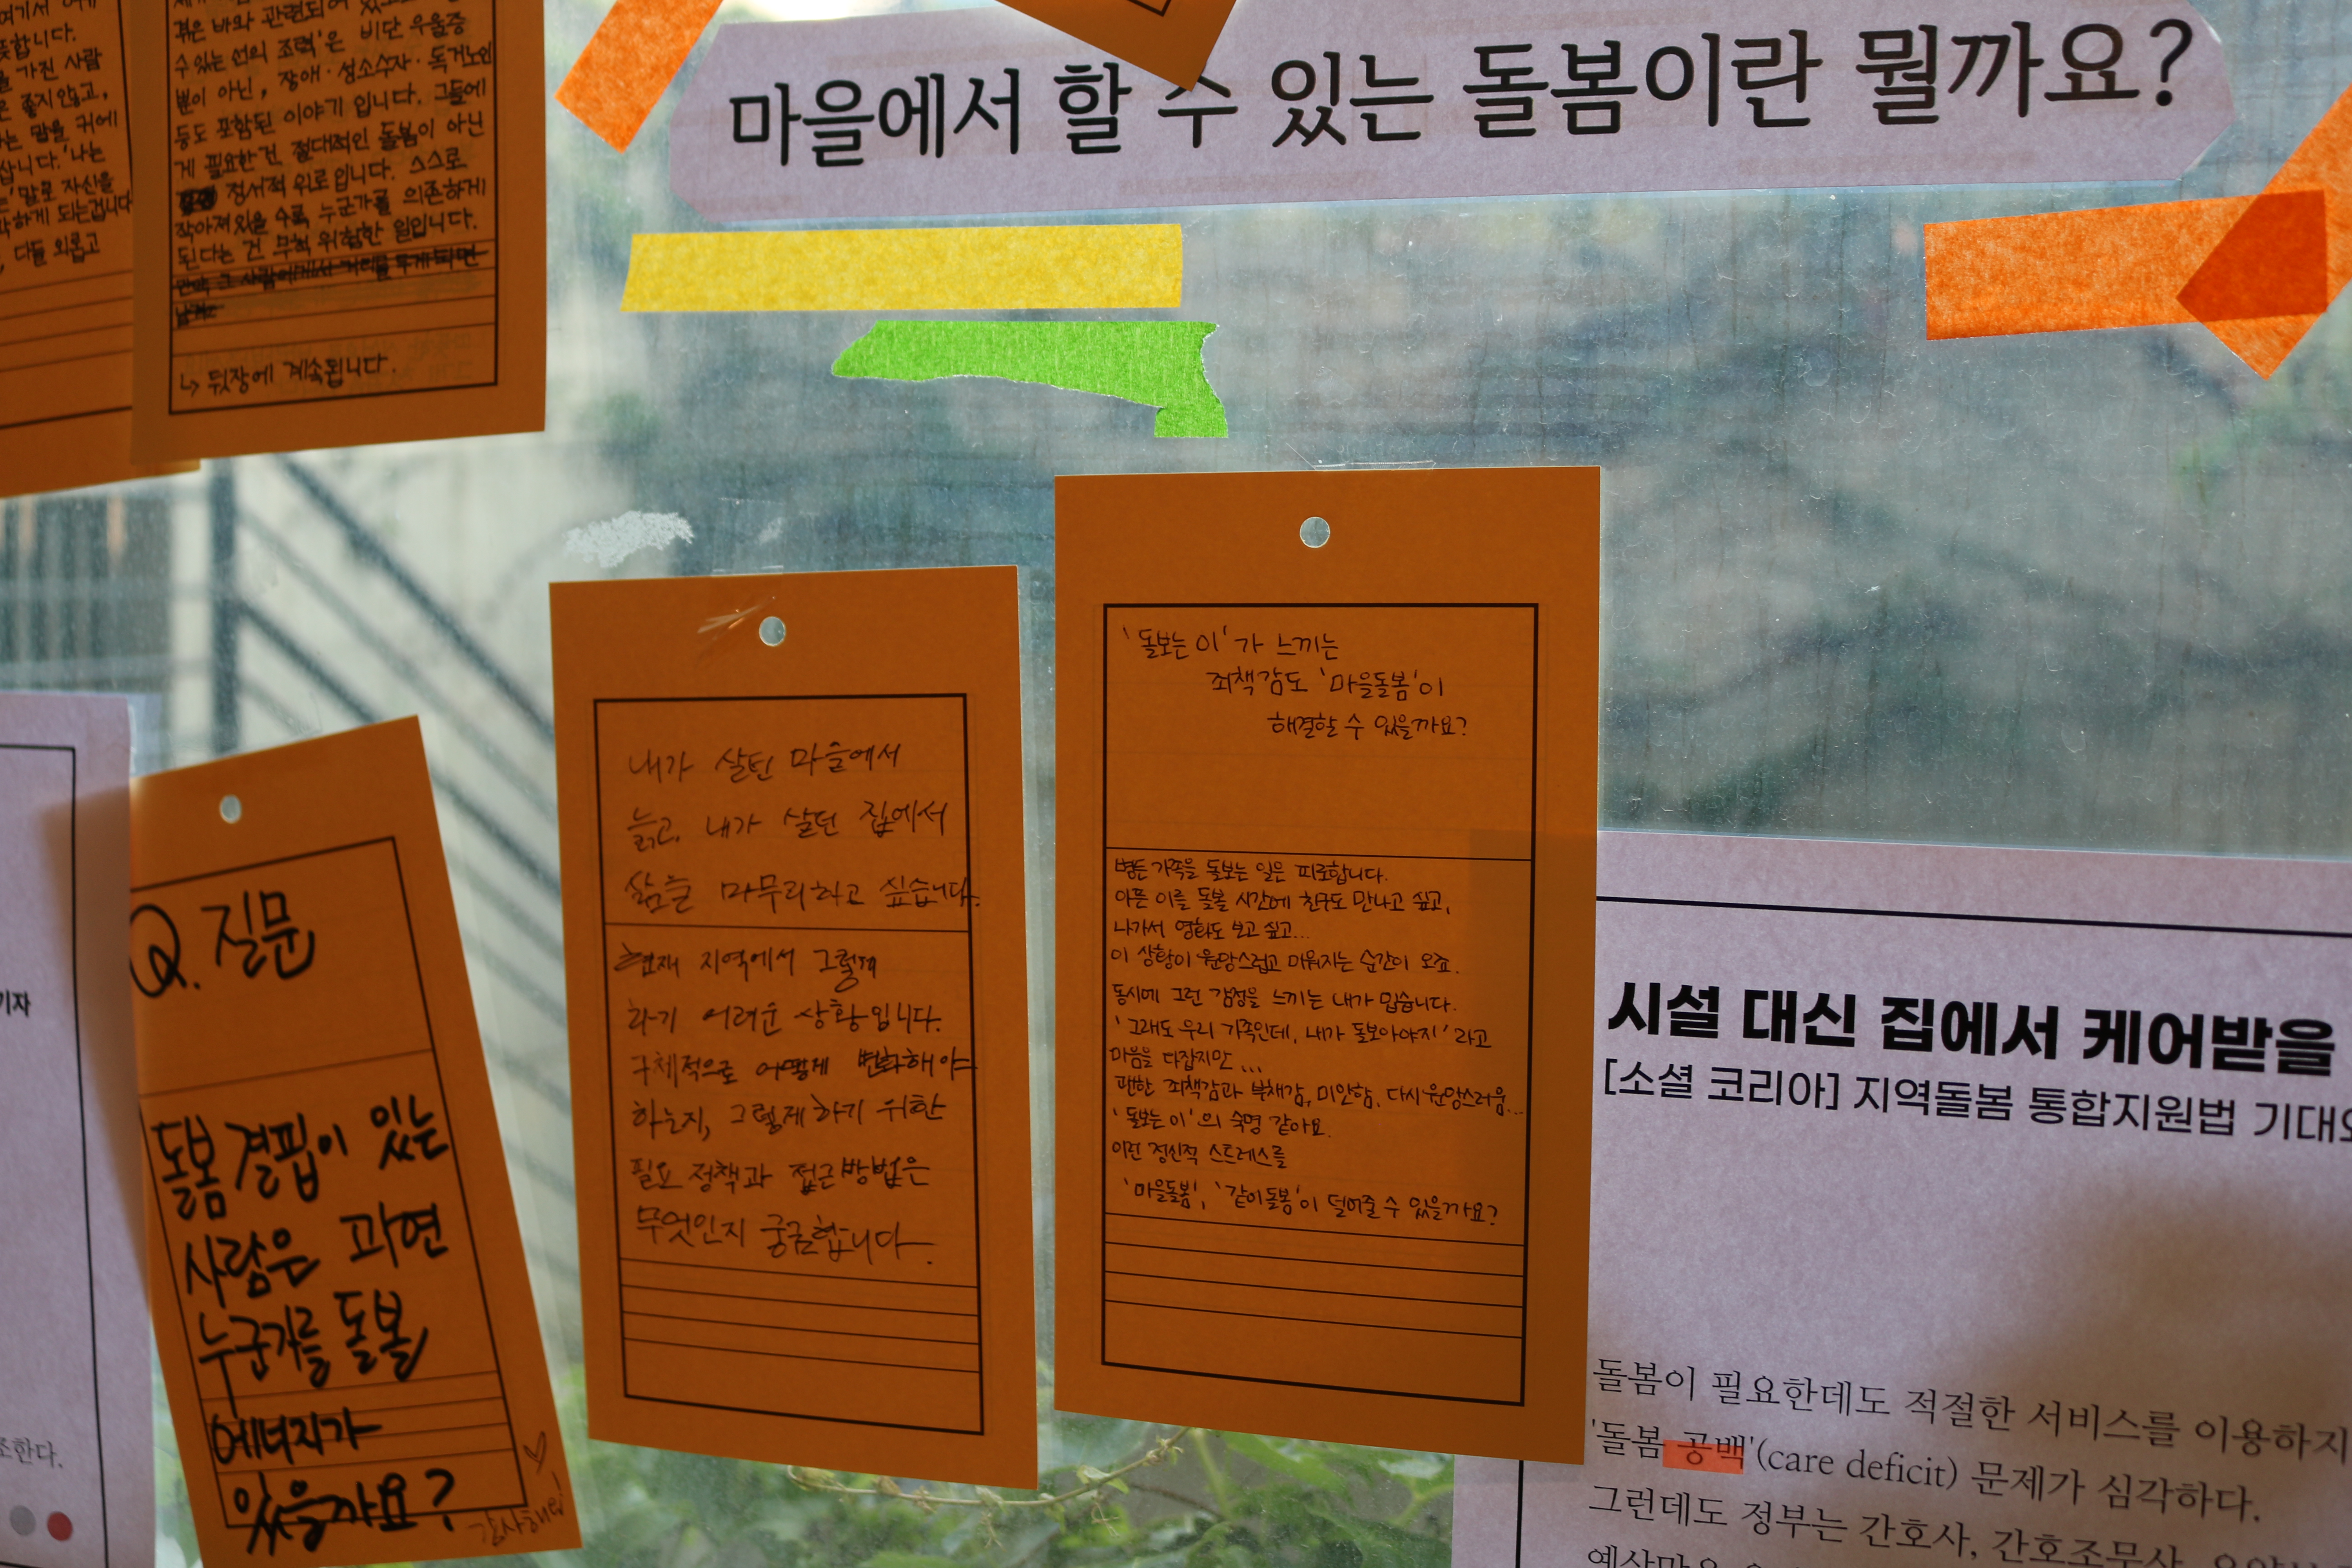 마을에서 할 수 있는 돌봄이란 뭘까요?
여기서
합니다.
가진 사람
좋지않고,
는 말을 귀에
삽니다. '나는
말로 자신을
하게 되는겁니다
다들 외롭고
겪은 바와 관련되어
수있는 선의 조력'은 비단 우울증
뿐이 아닌, 장애·성소수자·독거노인
등도 포함된 이야기 입니다. 그들에
게 필요한건 절대적인 돌봄이 아닌
정서적 위로입니다. 스스로
작아져있을 수록 누군가를 의존하게
된다는 건 무척 위험한 일입니다.
↳ 뒷장에 계속됩니다.
기자
조한다.
Q. 질문
돌봄 결핍이 있는
사람은 과연
누군가를 돌볼
에너지가
있을까요?
감사해요!
내가 살던 마을에서
늙고, 내가 살던 집에서
삶을 마무리하고 싶습니다.
현재 지역에서 그렇게
하기 어려운 상황입니다.
구체적으로 어떻게 변화해야
하는지, 그렇게하기 위한
필요 정책과 접근방법은
무엇인지 궁금합니다.
'돌보는 이'가 느끼는
죄책감도 '마을돌봄'이
해결할 수 있을까요?
병든 가족을 돌보는 일은 피로합니다.
아픈 이를 돌볼 시간에 친구도 만나고 싶고,
나가서 영화도 보고 싶고...
이 상황이 원망스럽고 미워지는 순간이 오죠.
동시에 그런 감정을 느끼는 내가 밉습니다.
'그래도 우리 가족인데, 내가 돌보아야지'라고
마음을 다잡지만...
괜한 죄책감과 부채감, 미안함, 다시 원망스러움...
'돌보는 이'의 숙명 같아요.
이런 정신적 스트레스를
'마을돌봄', '같이돌봄'이 덜어줄 수 있을까요?
시설 대신 집에서 케어받을
[소셜 코리아] 지역돌봄 통합지원법 기대와
돌봄이 필요한데도 적절한 서비스를 이용하지
'돌봄 공백'(care deficit) 문제가 심각하다.
그런데도 정부는 간호사, 간호조무사,